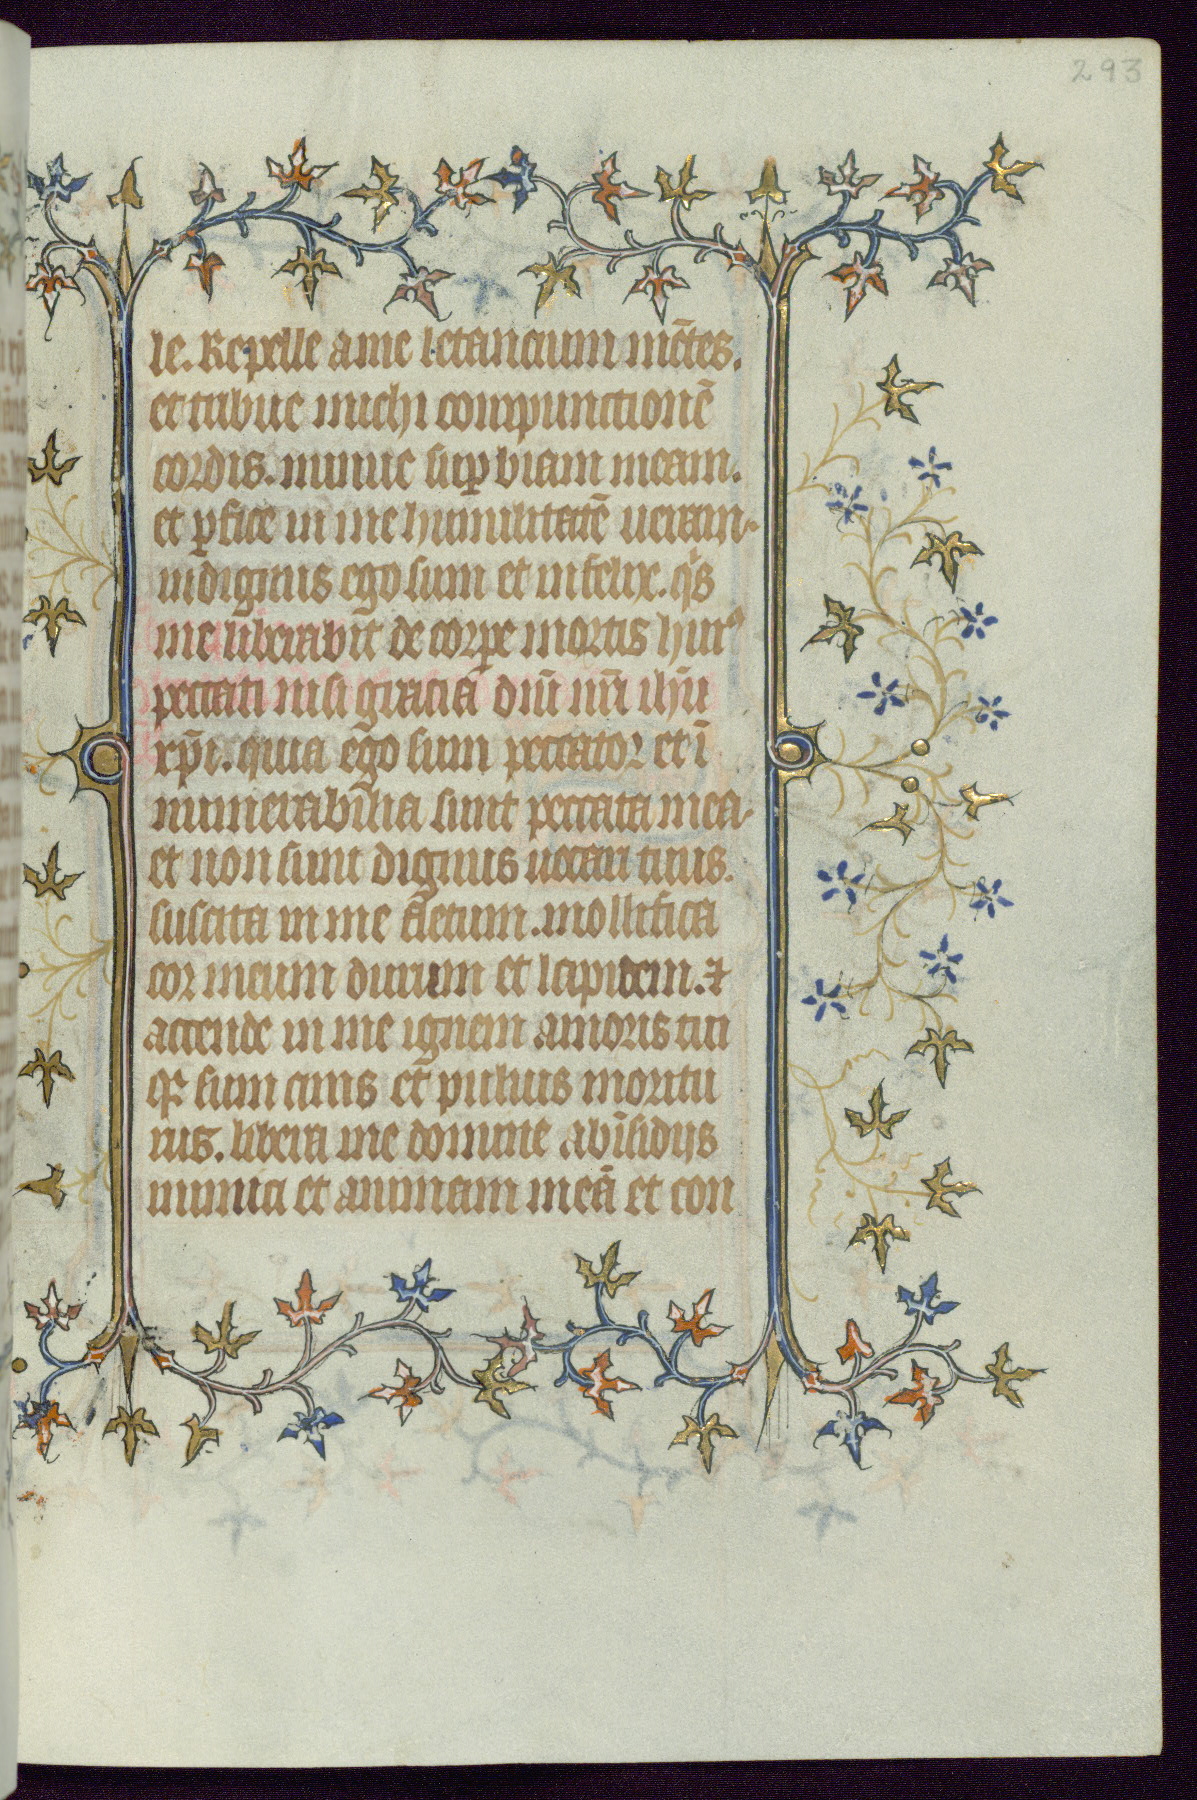 293
le. Repelle a me letancium mētes.
et tribue michi compunctionē
cordis. minue suꝑbiam meam.
et ꝑfice in me humilitatē ueram.
indignus ego sum et infelix. qͥs
me liberabit de corꝑe mortis huiꝰ
peccati nisi gracia dn̄i nr̄i ihū
xp̄i. quia ego sum peccator et ī
numerabilia sunt peccata mea.
et non sum dignus uocari tuus.
suscita in me fletum. mollifica
cor meum durum et lapideum. ⁊
accende in me ignem amoris tui
qꝛ sum cinis et puluis moritu
rus. libera me domine ab īsidijs
inimici et animam meā et con